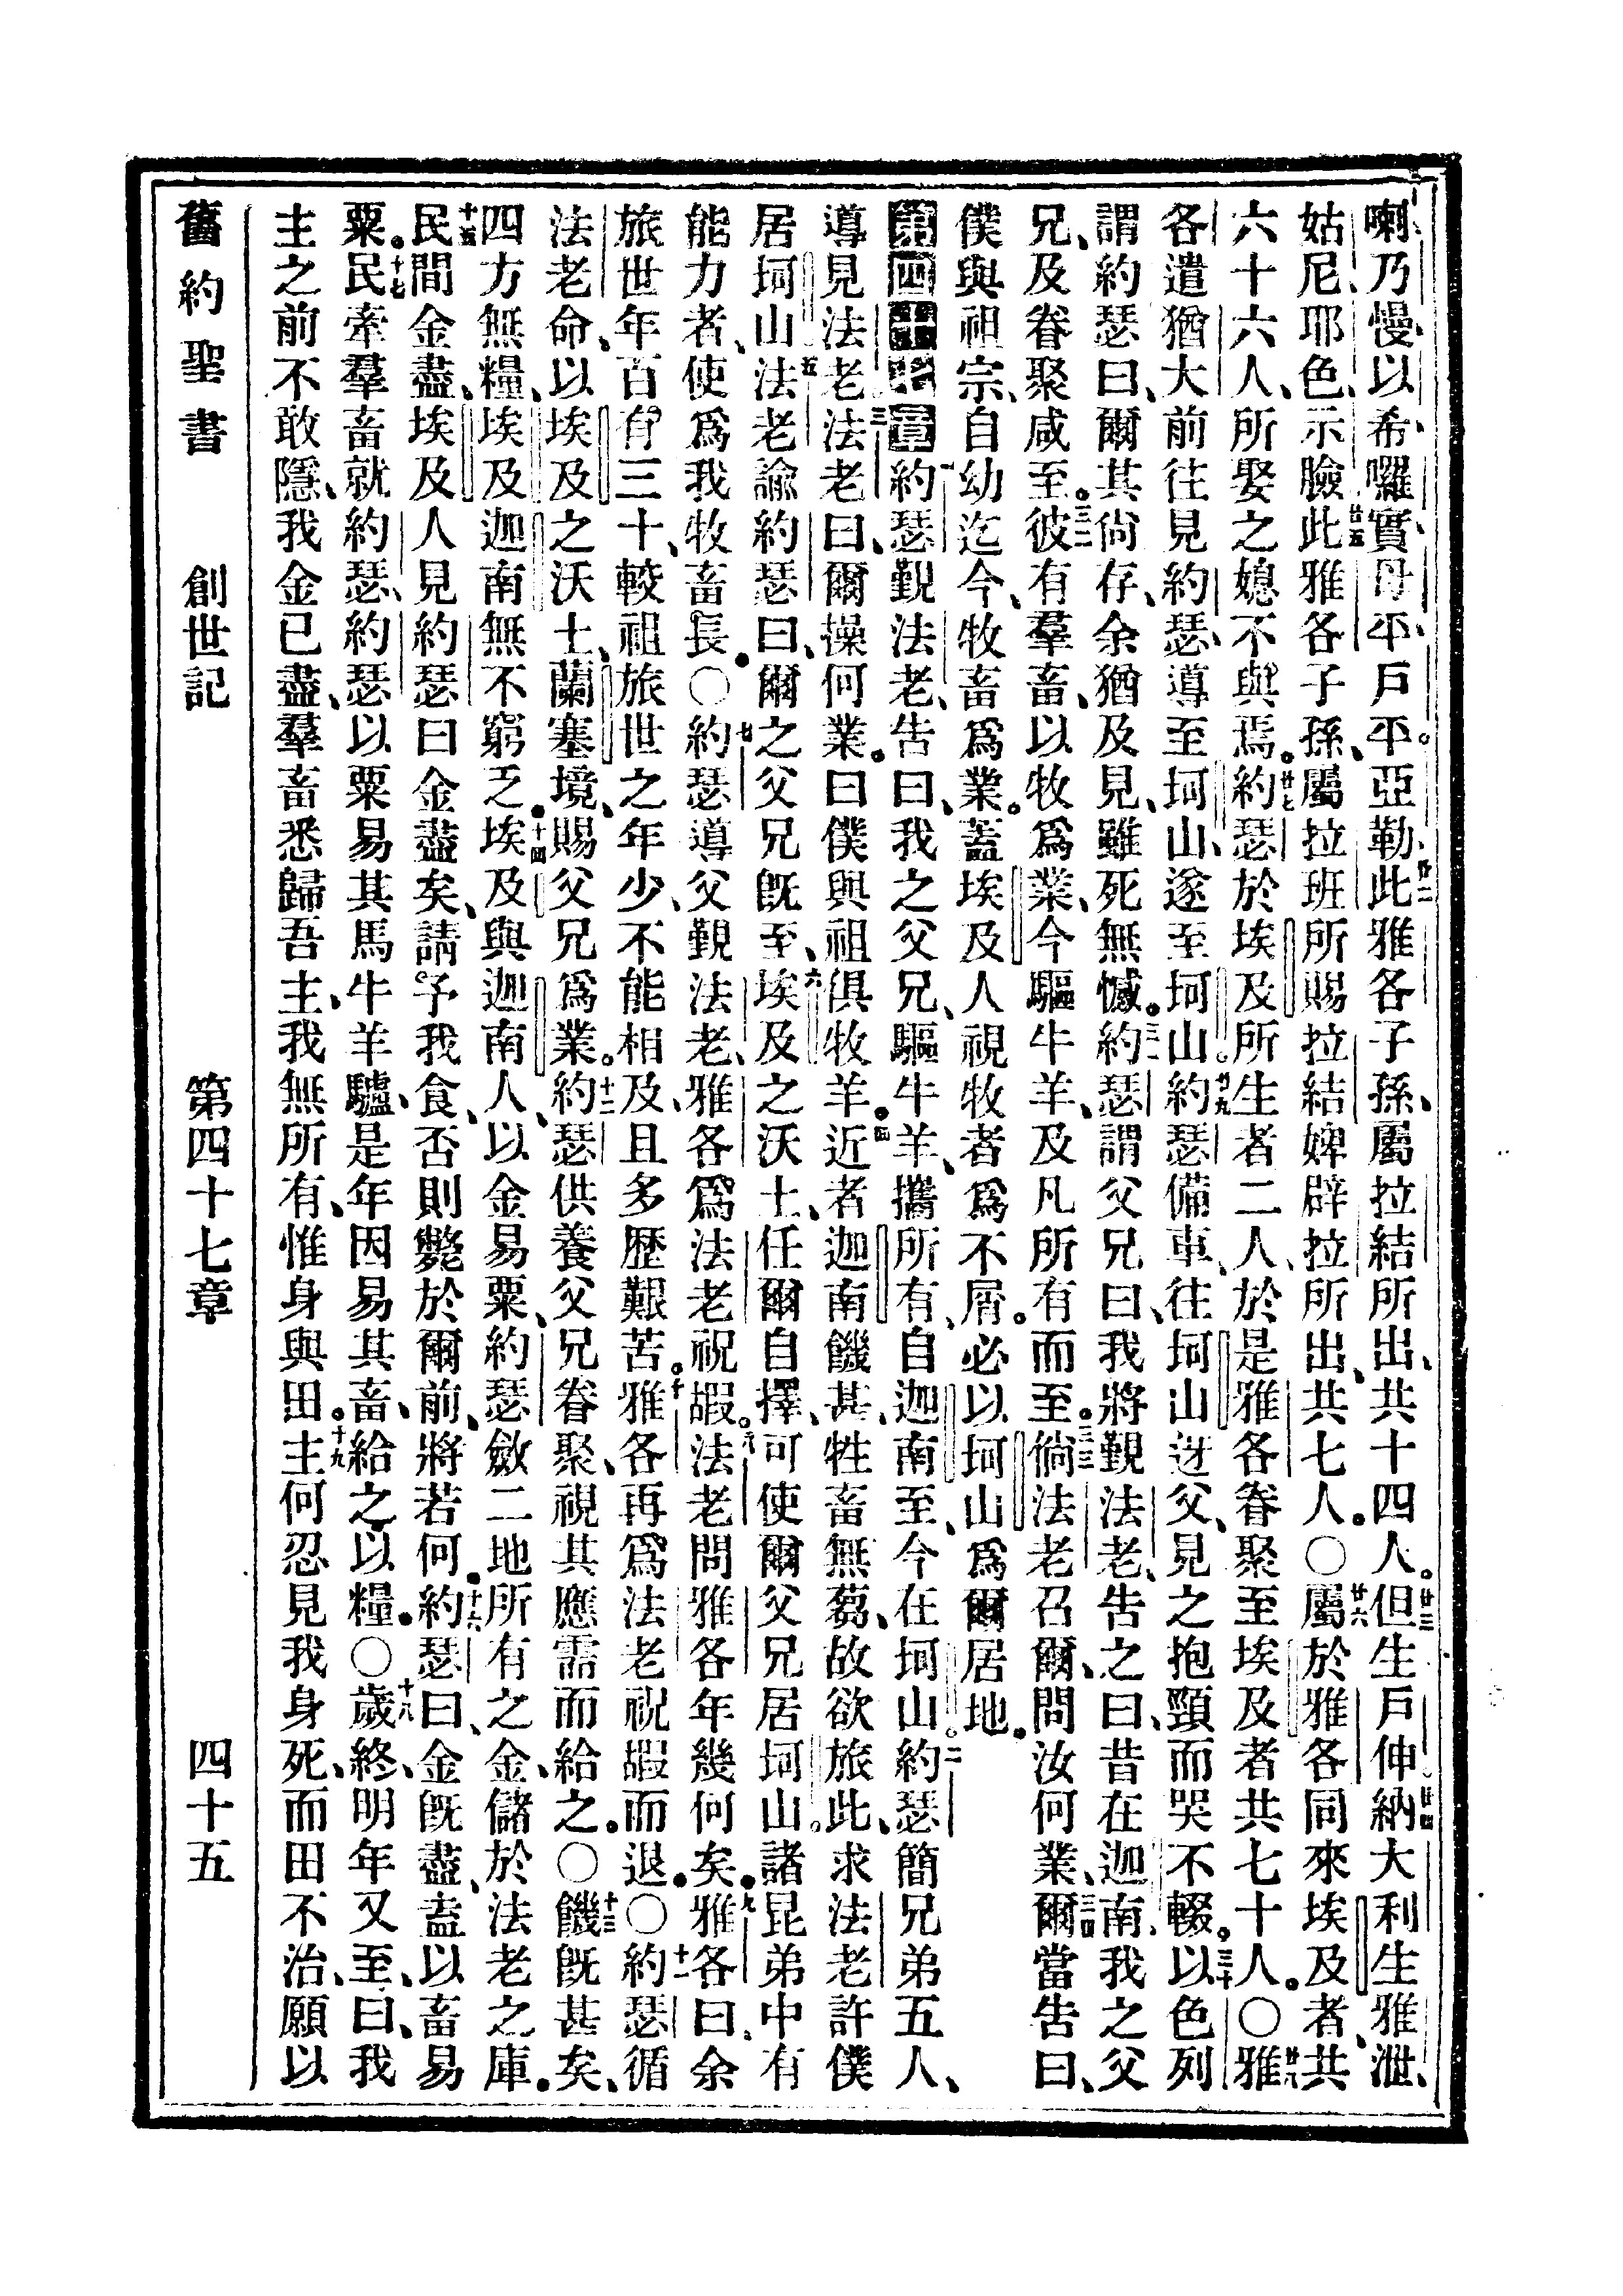 喇乃慢以希囉實母平戶平。亞勒、廿二此雅各子孫、屬拉結所出、共十四人。廿三但生戶伸。廿四納大利生雅泄、
姑尼、耶色、示臉。廿五此雅各子孫、屬拉班所賜拉結婢辟拉所出、共七人。〇廿六屬於雅各同來埃及者、共
六十六人、所娶之媳不與焉。廿七約瑟於埃及所生者二人、於是雅各眷聚至埃及者共七十人。〇廿八雅
各遣猶大前往見約瑟、導至坷山、遂至坷山。廿九約瑟備車、往坷山迓父、見之抱頸而哭不輟。三十以色列
謂約瑟曰、爾其尙存、余猶及見、雖死無憾。三一約瑟謂父兄曰、我將覲法老、告之曰、昔在迦南、我之父
兄、及眷聚咸至。三二彼有羣畜、以牧爲業、今驅牛羊、及凡所有而至。三三倘法老召爾、問汝何業、三四爾當告曰、
僕與祖宗、自幼迄今、牧畜爲業。蓋埃及人視牧者爲不屑。必以坷山爲爾居地。
第四十七章 一約瑟覲法老、告曰、我之父兄、驅牛羊、攜所有、自迦南至、今在坷山。二約瑟簡兄弟五人、
導見法老、三法老曰、爾操何業。曰僕與祖俱牧羊。四近者、迦南饑甚、牲畜無芻、故欲旅此、求法老許僕
居坷山。五法老諭約瑟曰、爾之父兄旣至、六埃及之沃土、任爾自擇、可使爾父兄居坷山。諸昆弟中有
能力者、使爲我牧畜長。〇七約瑟導父覲法老、雅各爲法老祝嘏。八法老問雅各年幾何矣。九雅各曰、余
旅世年百有三十、較祖旅世之年少、不能相及、且多歷艱苦。十雅各再爲法老祝嘏而退。〇十一約瑟循
法老命、以埃及之沃土、蘭塞境、賜父兄爲業。十二約瑟供養父兄眷聚、視其應需而給之。〇十三饑旣甚矣、
四方無糧、埃及迦南無不窮乏。十四埃及與迦南人、以金易粟、約瑟斂二地所有之金、儲於法老之庫。
十五民間金盡、埃及人見約瑟曰金盡矣、請予我食、否則斃於爾前、將若何。十六約瑟曰、金旣盡、盍以畜易
粟。十七民牽羣畜就約瑟、約瑟以粟易其馬牛羊驢、是年因易其畜、給之以糧。〇十八歲終、明年又至、曰、我
主之前不敢隱、我金已盡、羣畜悉歸吾主、我無所有、惟身與田。十九主何忍見我身死、而田不治、願以
舊約聖書 創世記 第四十七章 四十五